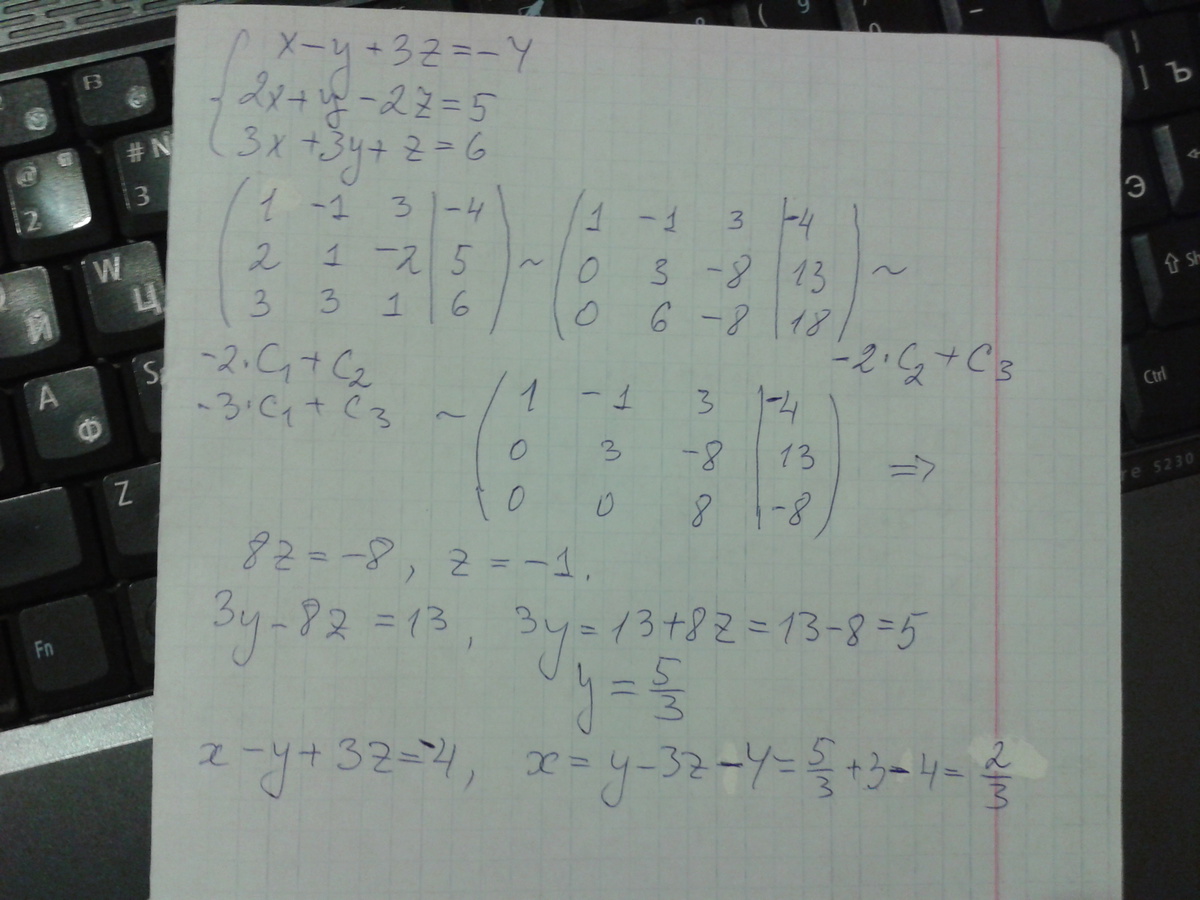 x - y + 3z = -4
2x + y - 2z = 5
3x + 3y + z = 6
( 1 -1 3 | -4 ) ~ ( 1 -1 3 | -4 ) ~
( 2 1 -2 | 5 ) ( 0 3 -8 | 13 )
( 3 3 1 | 6 ) ( 0 6 -8 | 18 )
-2·C₁ + C₂
-3·C₁ + C₃
-2·C₂ + C₃
~ ( 1 -1 3 | -4 )
( 0 3 -8 | 13 ) ⇒
( 0 0 8 | -8 )
8z = -8, z = -1.
3y - 8z = 13, 3y = 13 + 8z = 13 - 8 = 5
y = 5/3
x - y + 3z = -4, x = y - 3z - 4 = 5/3 + 3 - 4 = 2/3
B
@
2
# N
3
W
Ц
Й
A
Ф
Z
Fn
Ъ
Э
Sh
Ctrl
re 5230